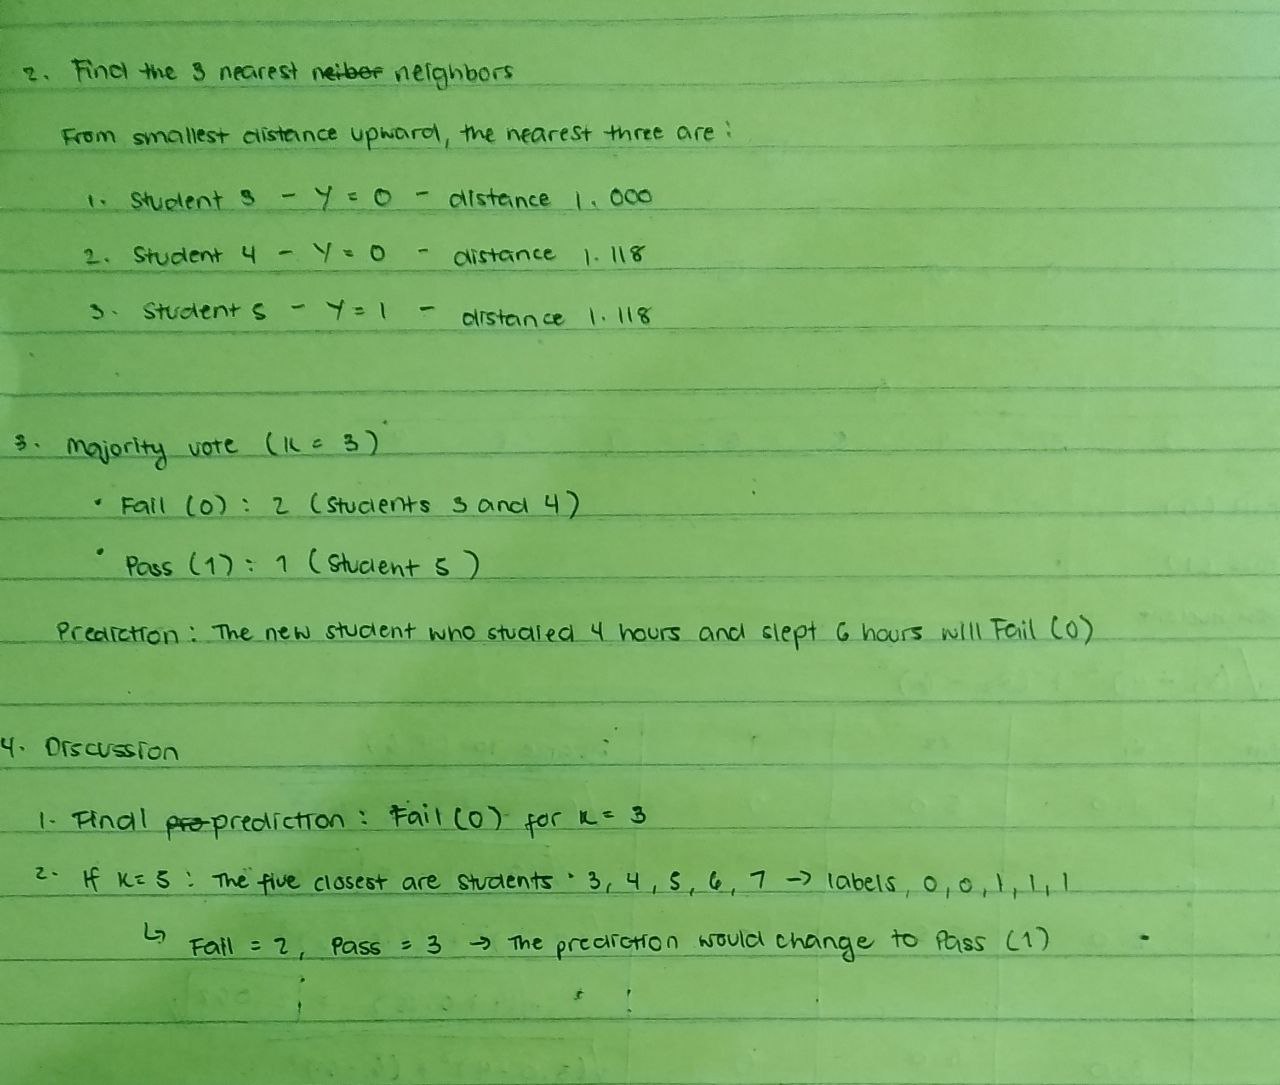 2. Find the 3 nearest neiber neighbors
From smallest distance upward, the nearest three are :
1. Student 3 - Y = 0 - distance 1.000
2. Student 4 - Y = 0 - distance 1.118
3. Student 5 - Y = 1 - distance 1.118
3. Majority vote (K = 3)
• Fail (0) : 2 (Students 3 and 4)
• Pass (1) : 1 (Student 5)
Prediction : The new student who studied 4 hours and slept 6 hours will Fail (0)
4. Discussion
1. Final pro prediction : Fail (0) for K = 3
2. If K = 5 : The five closest are students 3, 4, 5, 6, 7 → labels, 0, 0, 1, 1, 1
↳ Fail = 2, Pass = 3 → The prediction would change to Pass (1)